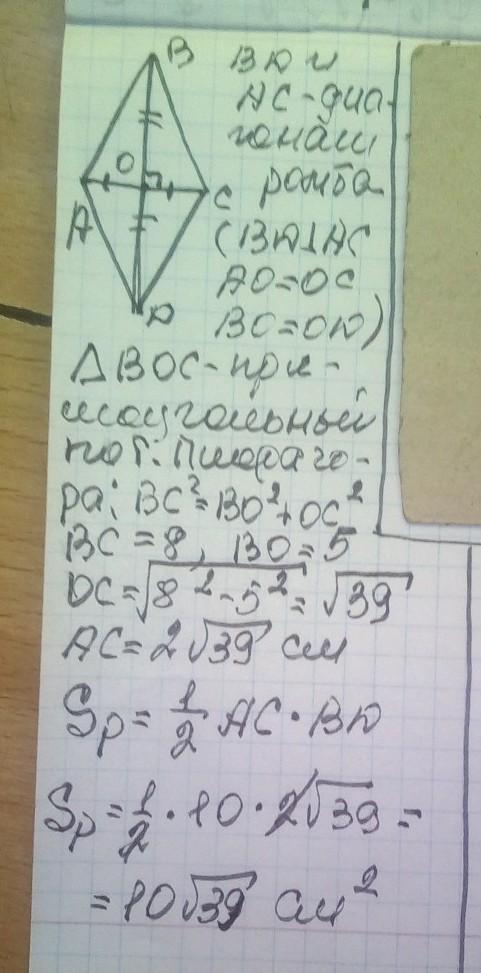 B
O
A
C
D
BD и
AC-диа-
гонали
ромба
(BD⊥AC
AO=OC
BO=OD)
△BOC-пря-
моугольный
по т. Пифаго-
ра: BC²=BO²+OC²
BC=8, BO=5
OC=√8²-5²=√39
AC=2√39 см
Sр=1/2 AC·BD
Sр=1/2·10·2√39=
=10√39 см²